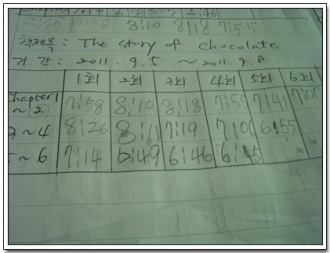 7:58 8:10 8:18 7:55
책제목 : The story of chocolate
기 간 : 2011. 9. 5. ~ 2011. 9. 8
1회 2회 3회 4회 5회 6회
chapter1 ~ 2 7:58 8:10 8:18 7:55 7:41
~ 4 8:26 7:19 7:01 6:55
~ 6 7:14 6:49 6:46 6:45